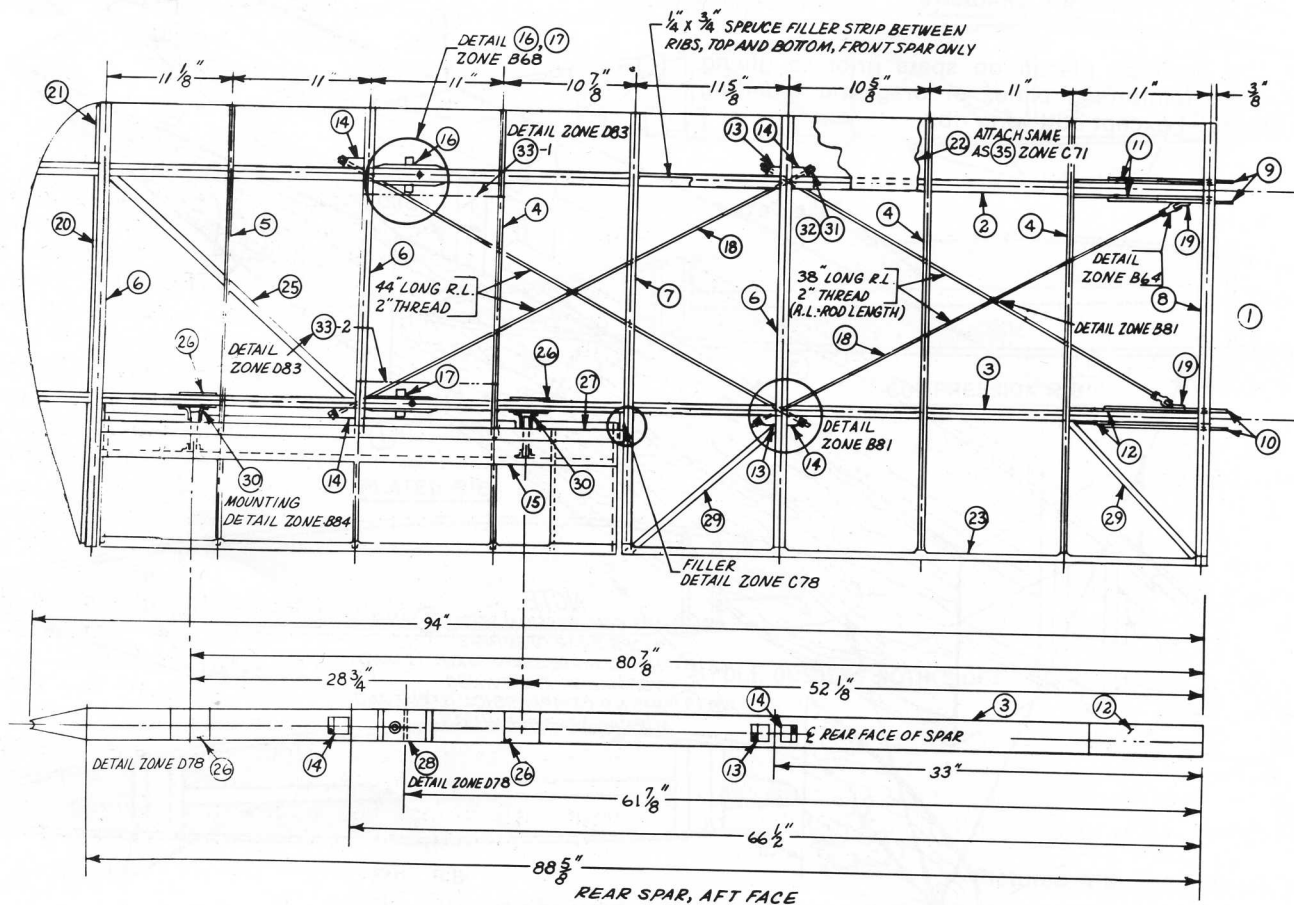 1/4" X 3/4" SPRUCE FILLER STRIP BETWEEN
RIBS, TOP AND BOTTOM, FRONT SPAR ONLY
DETAIL 16, 17
ZONE B68
11 1/8"
11"
11"
10 7/8"
11 5/8"
10 5/8"
11"
11"
3/8"
21
14
16
DETAIL ZONE D83
33-1
13
14
22
ATTACH SAME
AS 35 ZONE C71
11
9
20
5
4
32
31
4
2
4
19
6
25
6
44" LONG R.L.
2" THREAD
18
7
6
38" LONG R.L.
2" THREAD
(R.L.-ROD LENGTH)
DETAIL
ZONE B64
8
1
DETAIL
ZONE D83
33-2
18
DETAIL ZONE B81
26
17
26
27
3
19
DETAIL
ZONE B81
10
30
14
30
13
14
12
MOUNTING
DETAIL ZONE B84
15
29
23
29
FILLER
DETAIL ZONE C78
94"
80 7/8"
28 3/4"
52 1/8"
14
3
12
℄ REAR FACE OF SPAR
DETAIL ZONE D78
26
14
28
DETAIL ZONE D78
26
13
33"
61 7/8"
66 1/2"
88 5/8"
REAR SPAR, AFT FACE